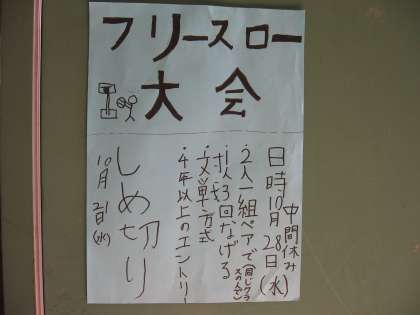 フリースロー
大会
中間休み
日時.10月28日(水)
・2人一組ペアで(同じクラスの人で)
・1人3回なげる
・対戦
・文単方式
・4年以上のエントリー
しめ切り
10月21日(水)